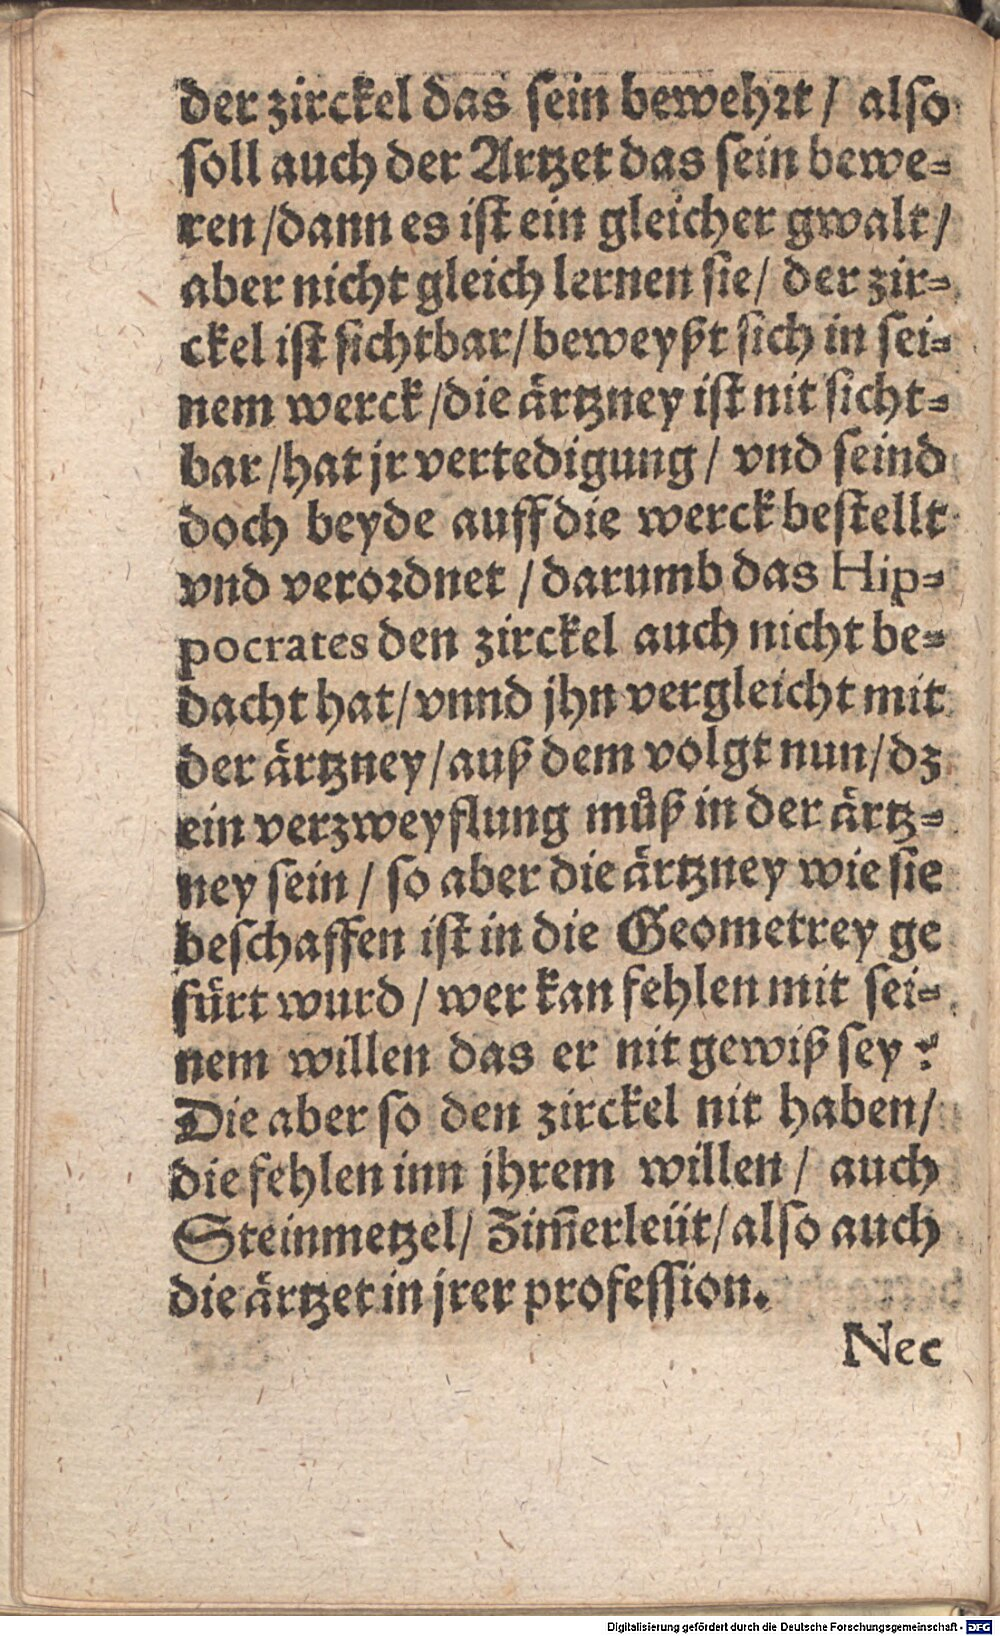 der zirckel das sein bewehrt / also
soll auch der Artzet das sein bewe⸗
ren / dann es ist ein gleicher gwalt /
aber nicht gleich lernen sie / der zir⸗
ckel ist sichtbar / beweyßt sich in sei⸗
nem werck / die ärtzney ist nit sicht⸗
bar / hat jr vertedigung / vnd seind
doch beyde auff die werck bestellt
vnd verordnet / darumb das Hip⸗
pocrates den zirckel auch nicht be⸗
dacht hat / vnnd jhn vergleicht mit
der ärtzney / auß dem volgt nun / dz
ein verzweyflung můß in der ärtz⸗
ney sein / so aber die ärtzney wie sie
beschaffen ist in die Geometrey ge
fürt wurd / wer kan fehlen mit sei⸗
nem willen das er nit gewiß sey ?
Die aber so den zirckel nit haben /
die fehlen inn jhrem willen / auch
Steinmetzel / Zim̃erleüt / also auch
die ärtzet in jrer profession.
Nec
Digitalisierung gefördert durch die Deutsche Forschungsgemeinschaft - DFG